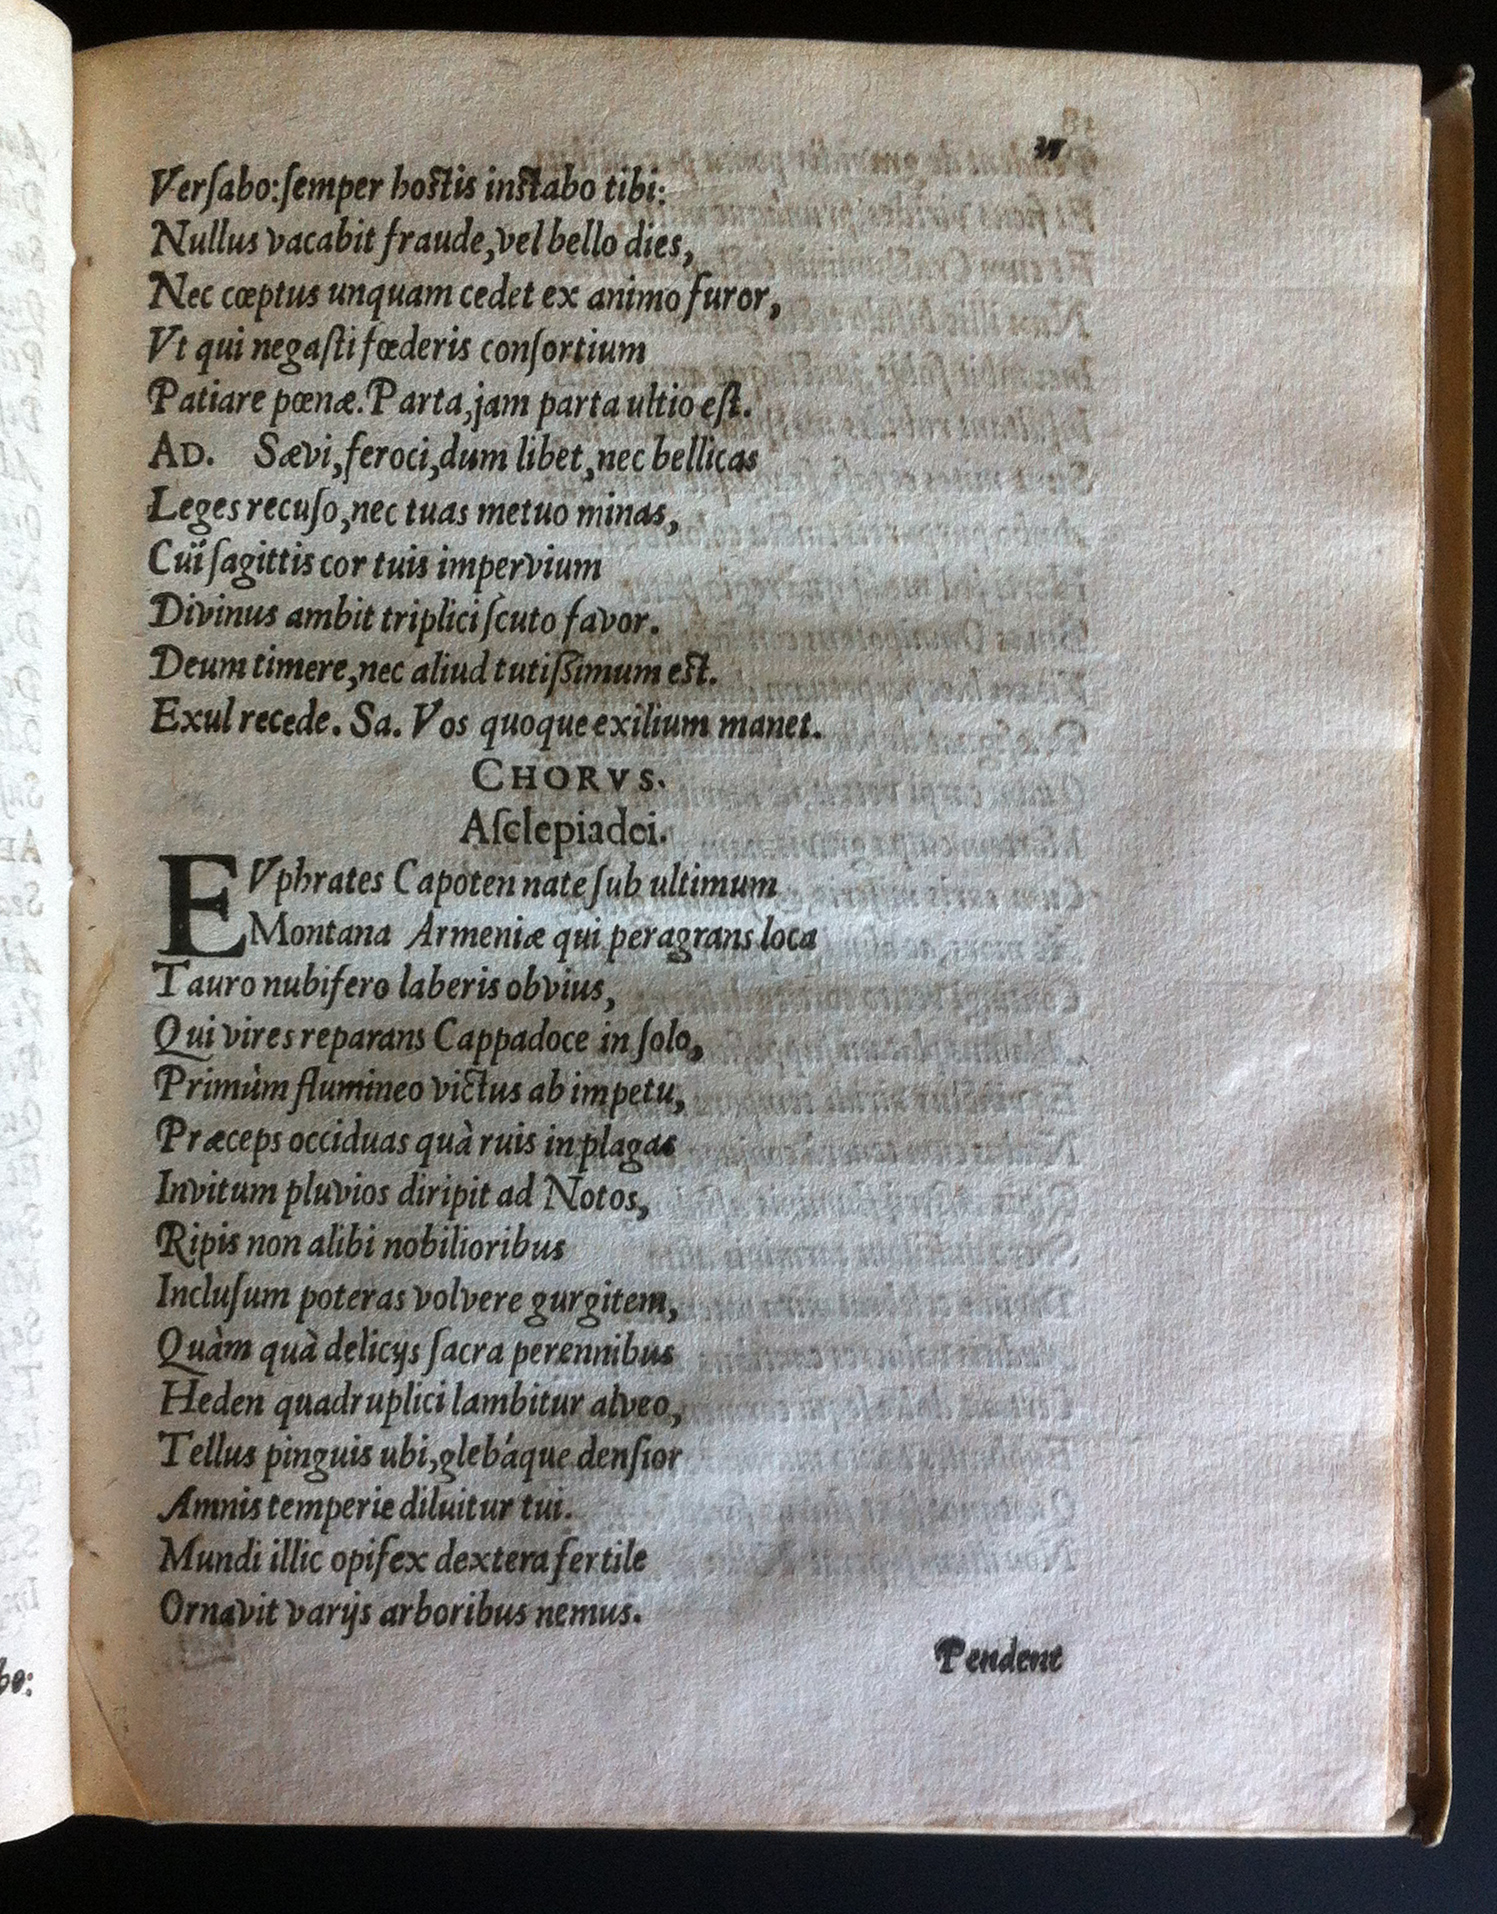 Verſabo:ſemper hostis instabo tibi:
Nullus vacabit fraude,vel bello dies,
Nec cœptus unquam cedet ex animo furor,
Vt qui negaſti fœderis conſortium
Patiare pœnæ. Parta,jam parta ultio eſt.
AD. Sævi,feroci,dum libet,nec bellicas
Leges recuſo,nec tuas metuo minas,
Cuï ſagittis cor tuis impervium
Divinus ambit triplici ſcuto favor.
Deum timere,nec aliud tutiſſimum est.
Exul recede. Sa. Vos quoque exilium manet.
CHORVS.
Aſclepiadei.
EVphrates Capoten nate ſub ultimum
Montana Armeniæ qui peragrans loca
Tauro nubifero laberis obvius,
Qui vires reparans Cappadoce in ſolo,
Primùm flumineo victus ab impetu,
Præceps occiduas quà ruis in plagas
Invitum pluvios diripit ad Notos,
Ripis non alibi nobilioribus
Incluſum poteras volvere gurgitem,
Quàm quà delicijs ſacra perennibus
Heden quadruplici lambitur alveo,
Tellus pinguis ubi,glebáque denſior
Amnis temperie diluitur tui.
Mundi illic opifex dextera fertile
Ornavit varijs arboribus nemus.
Pendent